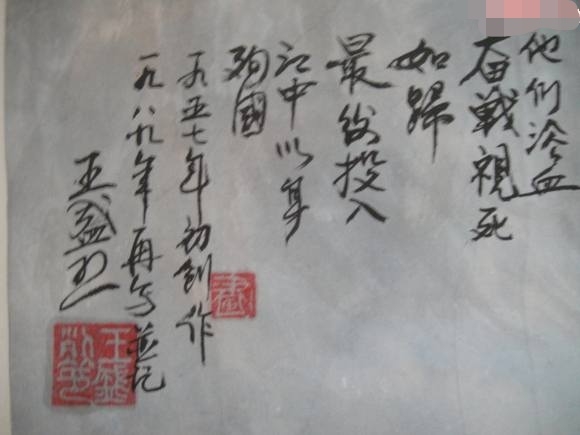 他们浴血
奋戰視死
如歸
最後投入
江中以身
殉國
一九五七年初創作
一九八九年再写並记
王盛烈
畫